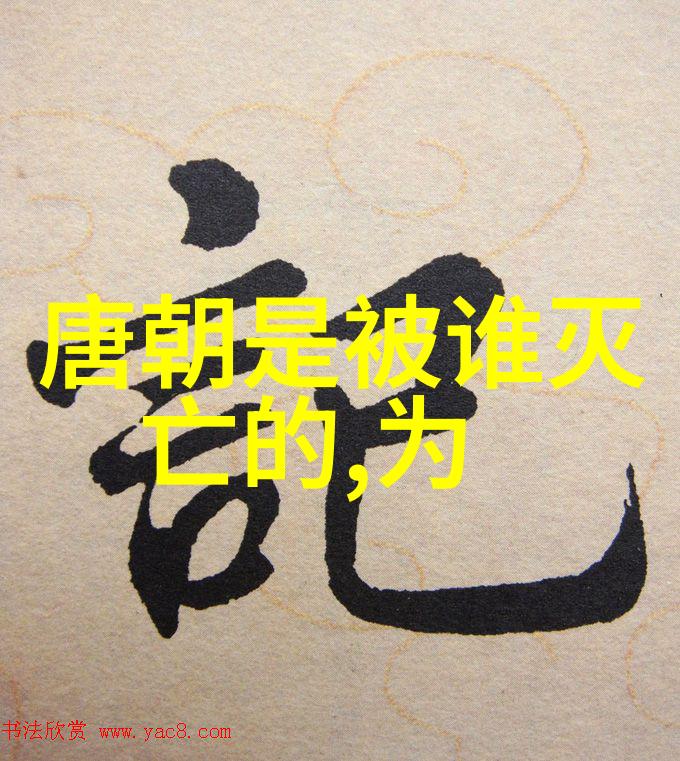 記
唐朝是被谁灭
亡的,为
书法欣赏 www.yac8.com